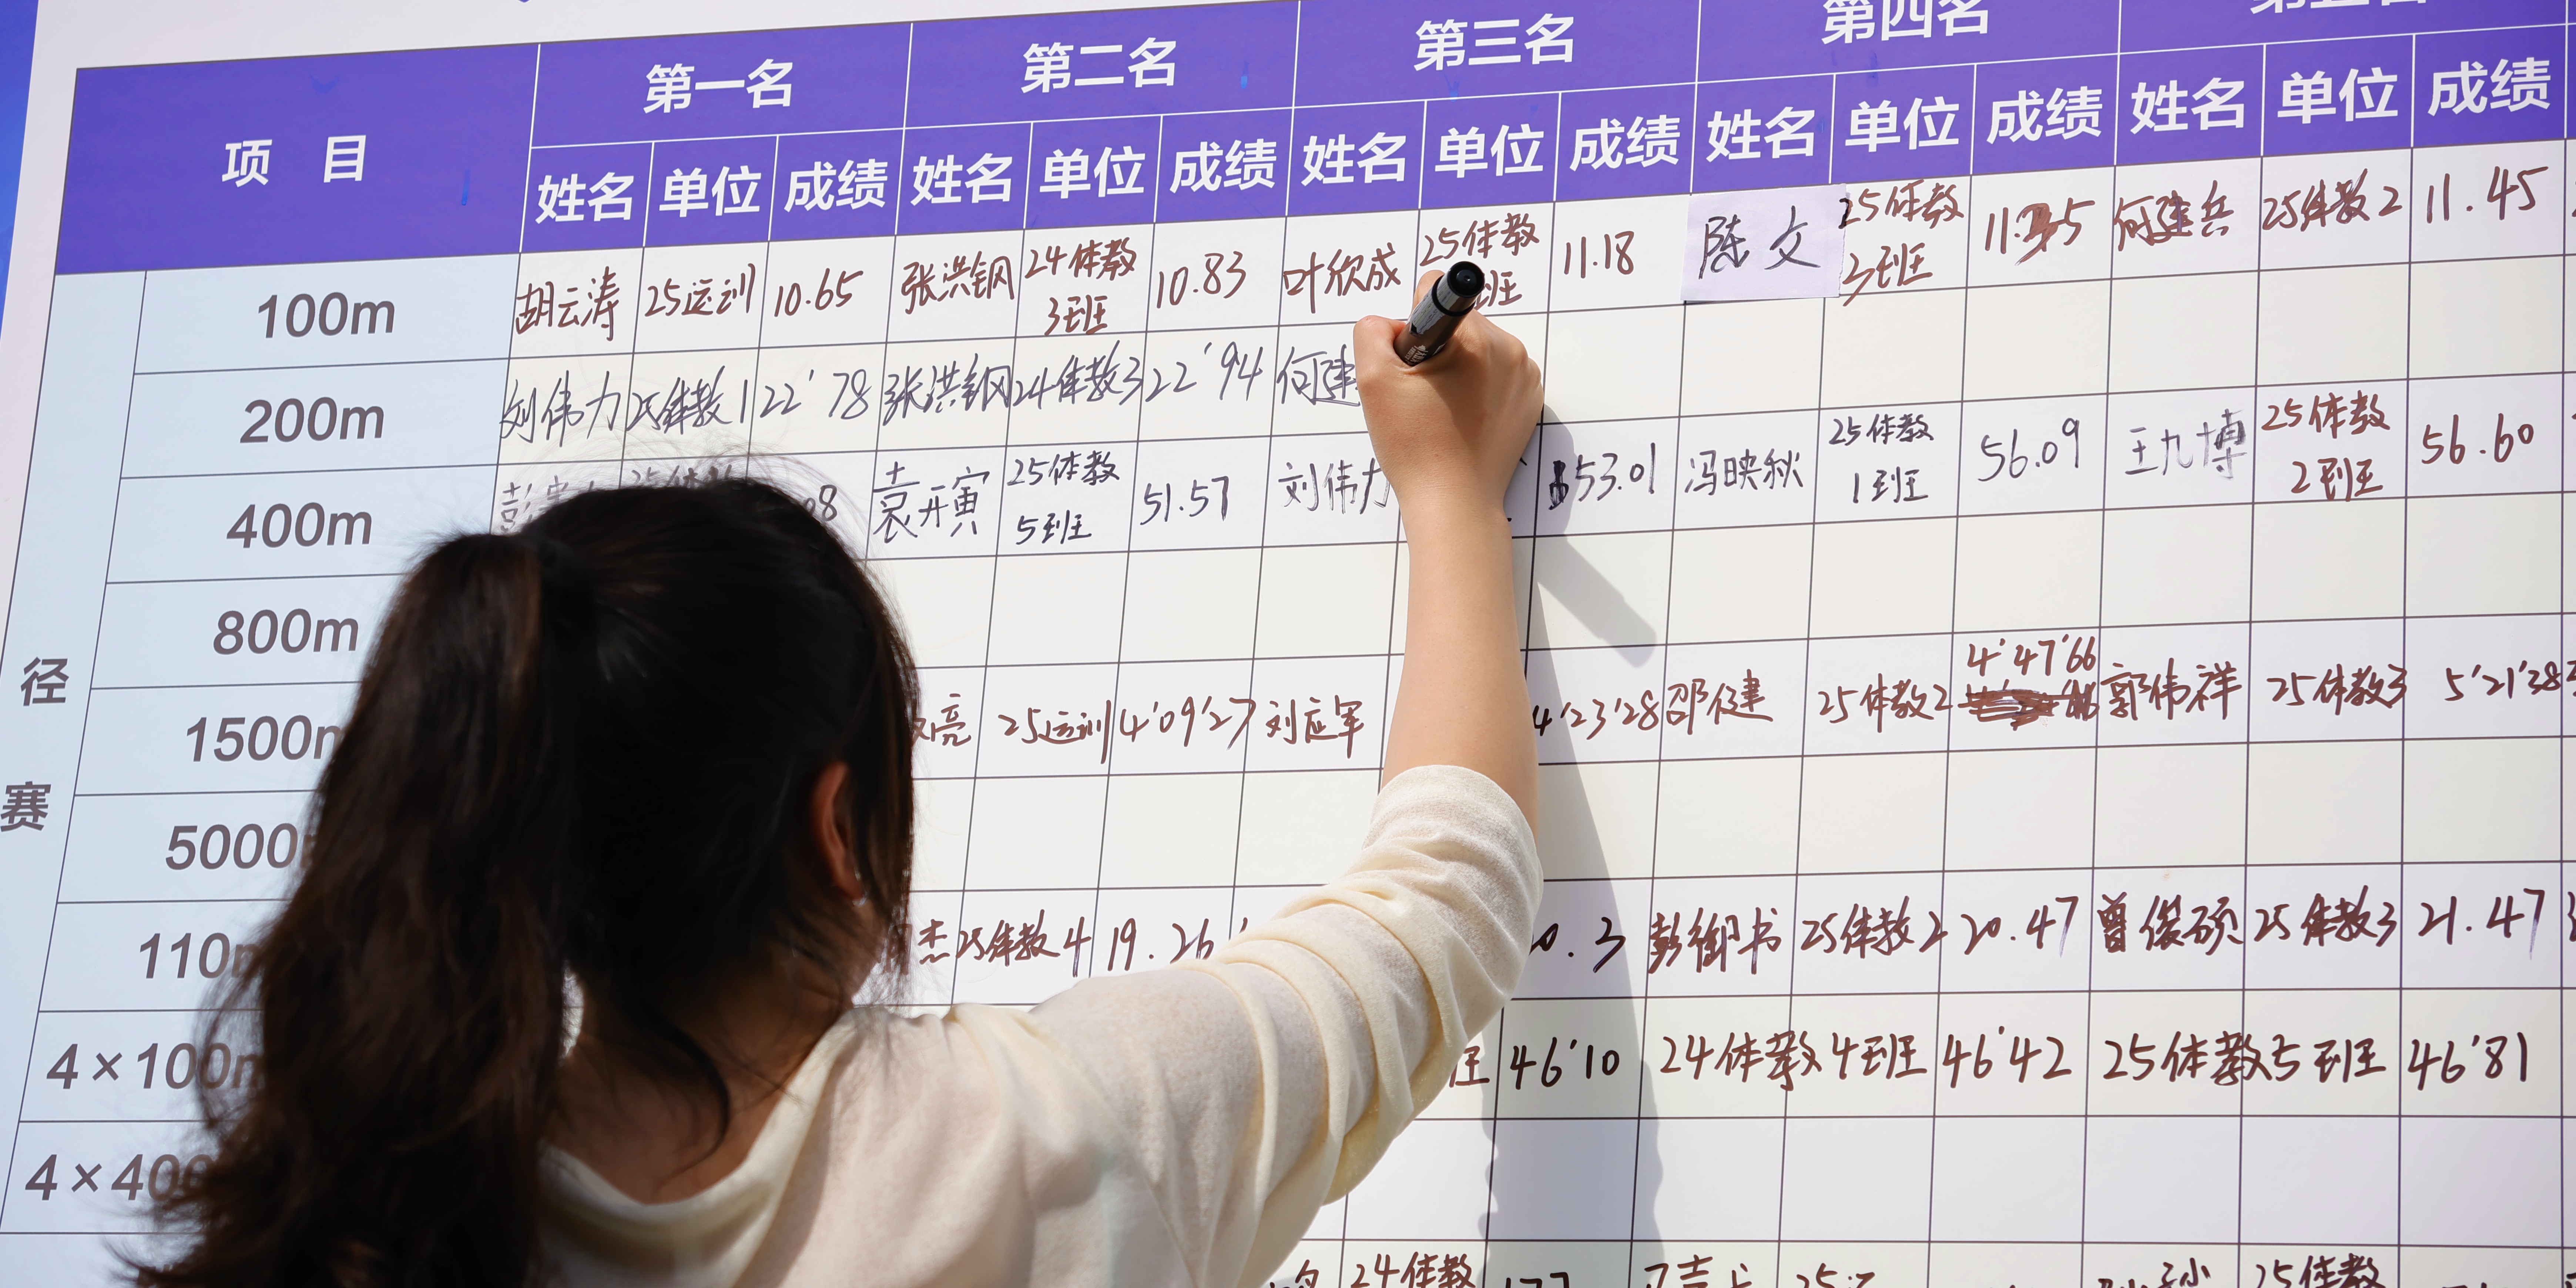 项 目
第一名 第二名 第三名 第四名
姓名 单位 成绩 姓名 单位 成绩 姓名 单位 成绩 姓名 单位 成绩 姓名 单位 成绩
径赛
100m 胡云涛 25运训 10.65 张洪钢 24体教3班 10.83 叶欣成 25体教 班 11.18 陈文 25体教3班 何建兵 25体教2 11.45
200m 刘伟力 25体教1 22'78 张洪钢 24体教3 22'94 何建
400m 袁开寅 25体教5班 51.57 刘伟力 53.01 冯映秋 25体教1班 56.09 王九博 25体教2班 56.60
800m
1500m 亮 25运训 4'09'27 刘应军 4'23'28 邵健 25体教2 4'47'66 郭伟祥 25体教3 5'21'38
5000
110 杰 25体教4 19.26 0.3 彭御书 25体教2 20.47 曾俊硕 25体教3 21.47
4×100m 46'10 24体教4班 46'42 25体教5班 46'81
4×400
24体教 25体教